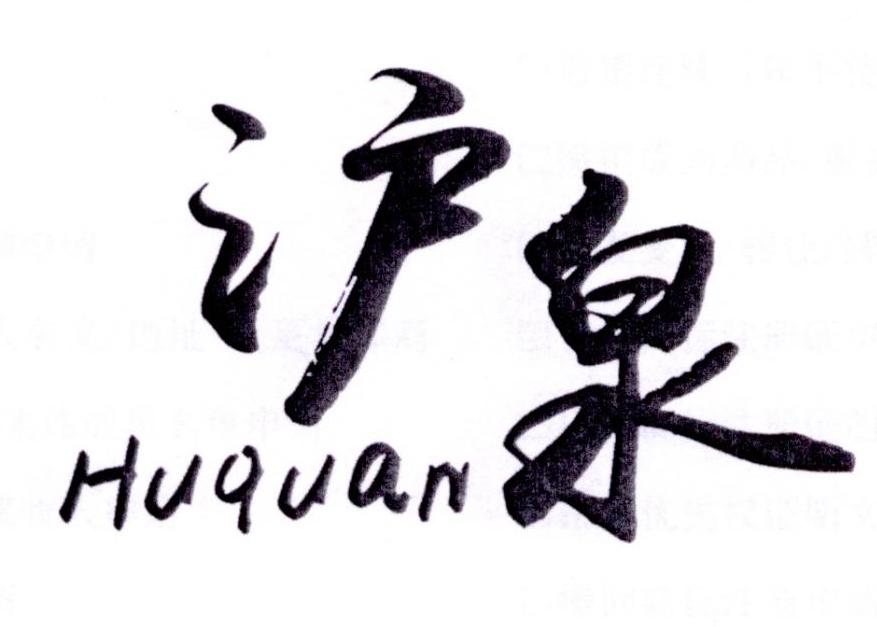 沪泉
Huquan